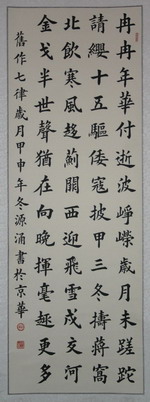 冉冉年華付逝波崢嶸歲月未蹉跎
請纓十五驅倭寇披甲三冬擣蔣窩
北飲寒風趨薊關西迎飛雪戍交河
金戈半世聲猶在向晚揮毫趣更多
舊作七律歲月甲申年冬源涌書於京華